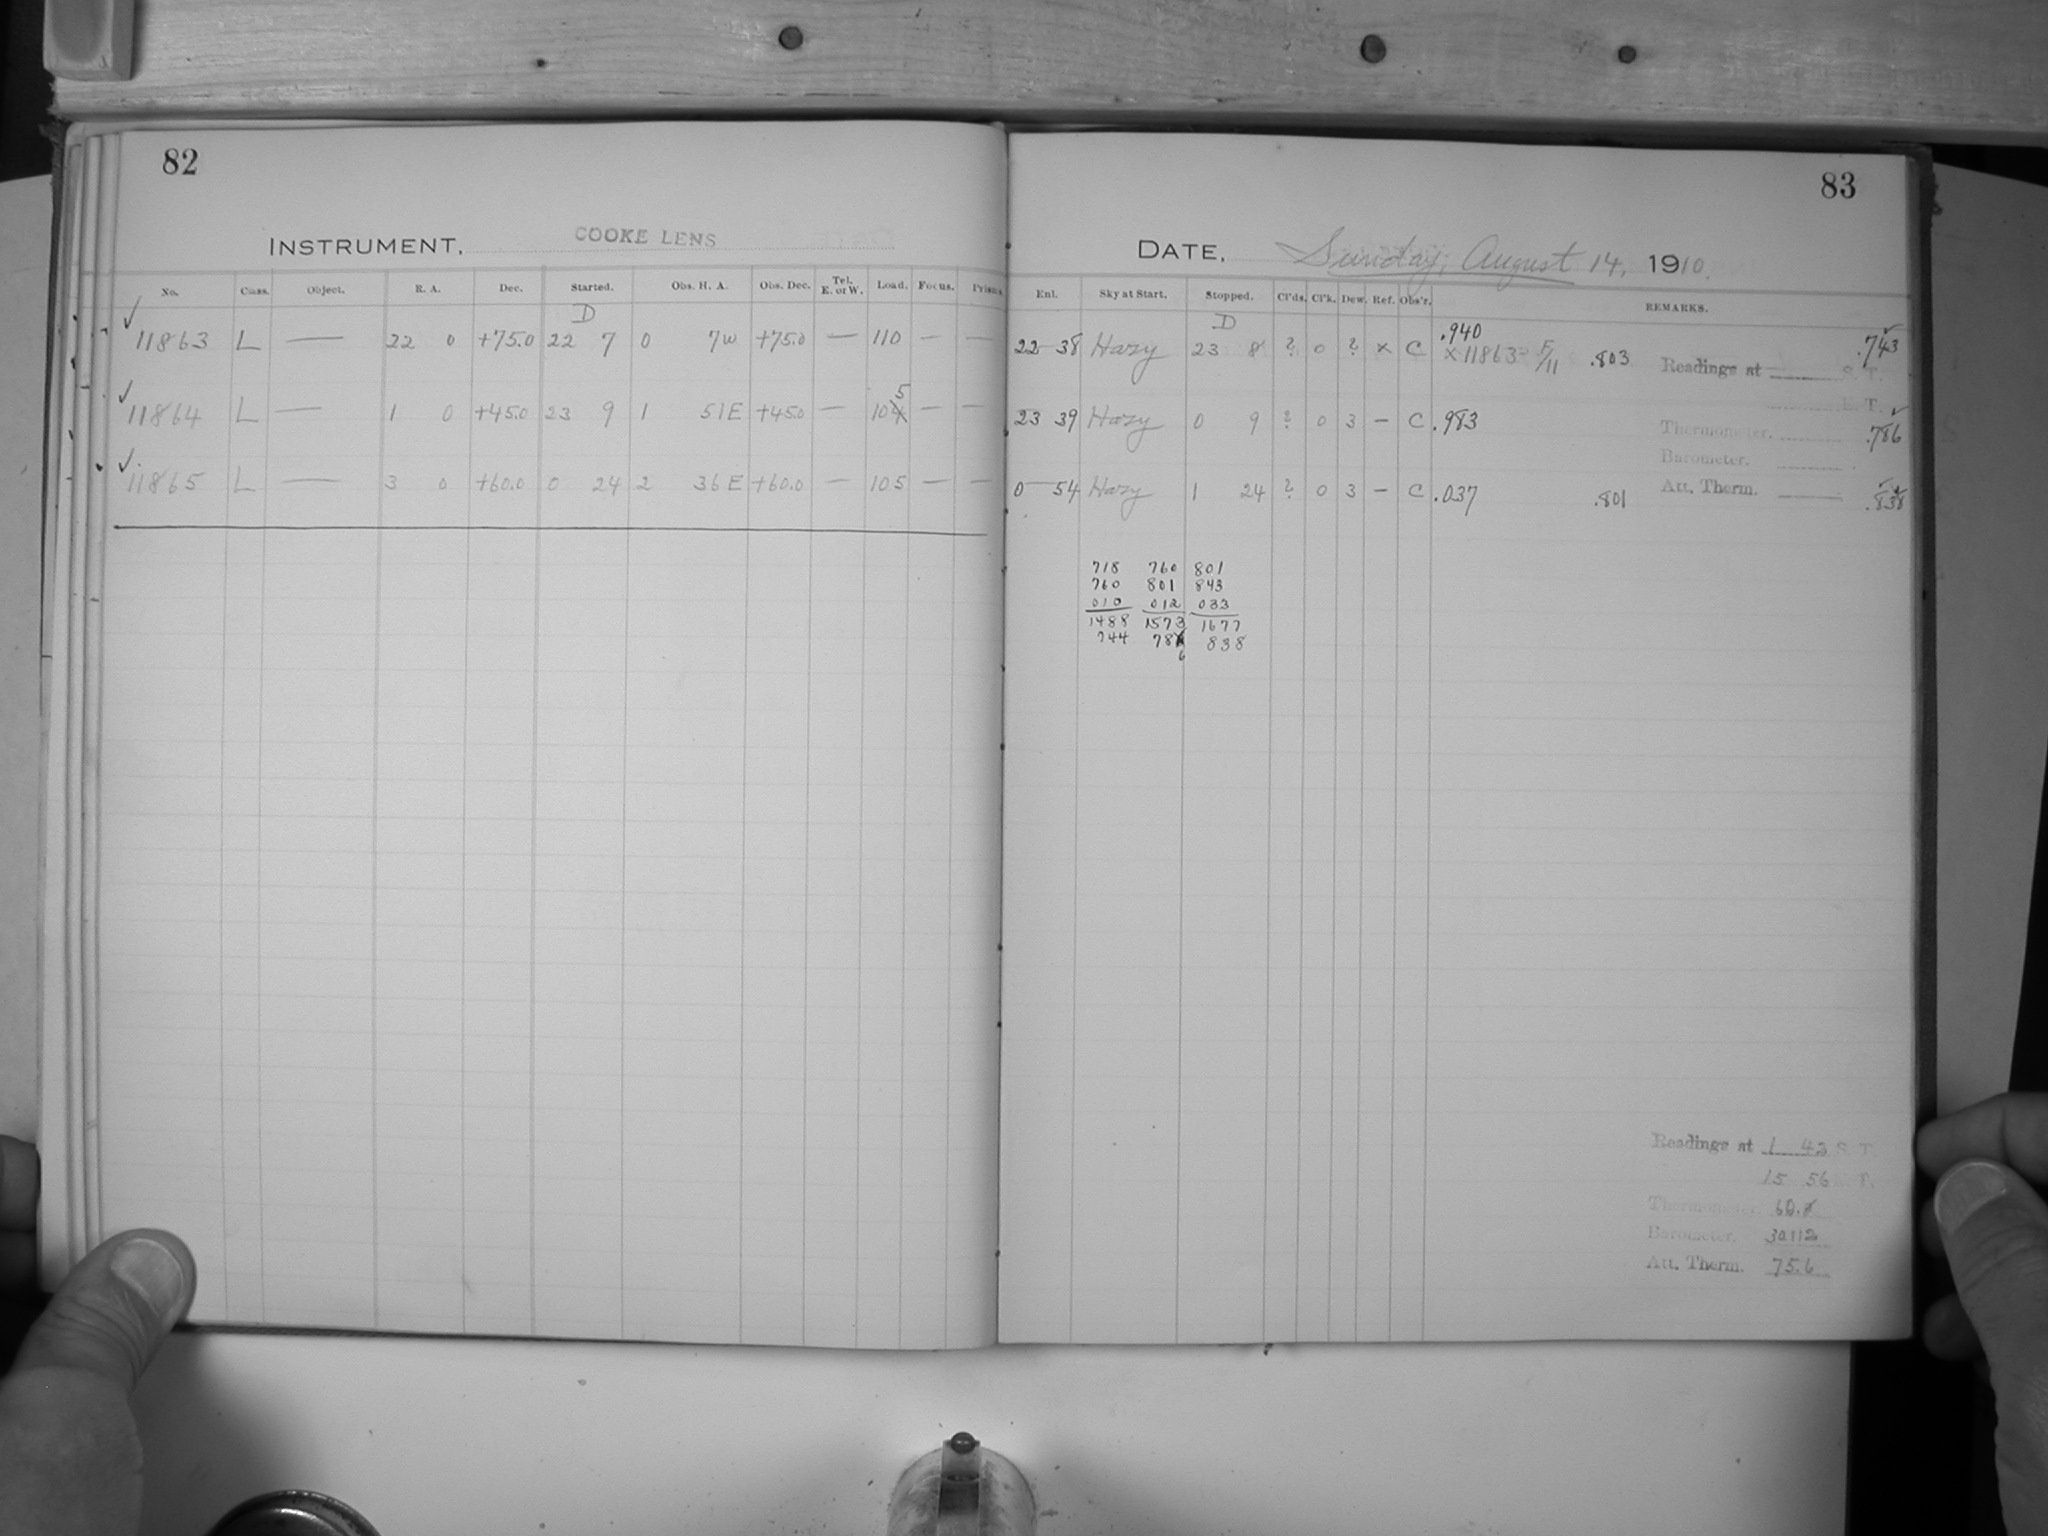 82
INSTRUMENT, COOKE LENS
No. Class. Object. R. A. Dec. Started. Obs. H. A. Obs. Dec. Tel. E. or W. Load. Focus. Prism.
D
✓ 11863 L — 22 0 +75.0 22 7 0 7w +75.0 — 110 — —
✓ 11864 L — 1 0 +45.0 23 9 1 51E +45.0 — 105 — —
✓ 11865 L — 3 0 +60.0 0 24 2 36E +60.0 — 105 — —
83
DATE, Sunday, August 14, 1910.
Enl. Sky at Start. Stopped. Cl'ds. Cl'k. Dew. Ref. Obs'r. REMARKS.
D
22 38 Hazy 23 8 ? 0 ? x C .940 x 11863 F/11 .803 .743
Readings at S. T.
23 39 Hazy 0 9 ? 0 3 — C .983 .786
Thermometer.
Barometer.
Att. Therm.
0 54 Hazy 1 24 ? 0 3 — C .037 .801 .838
718 760 801
760 801 843
010 012 033
1488 1573 1677
744 786 838
Readings at 1 43 S. T.
15 56 T.
Thermometer.
Barometer. 30.112
Att. Therm. 75.6